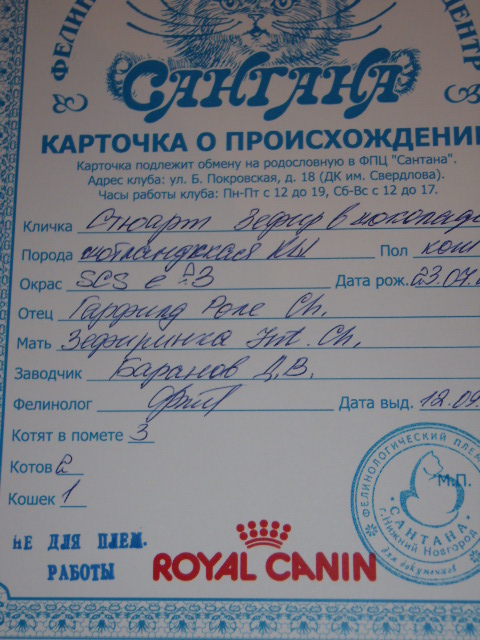 ФЕЛИН ЦЕНТР
САНТАНА
КАРТОЧКА О ПРОИСХОЖДЕНИИ
Карточка подлежит обмену на родословную в ФПЦ "Сантана".
Адрес клуба: ул. Б. Покровская, д. 18 (ДК им. Свердлова).
Часы работы клуба: Пн-Пт с 12 до 19, Сб-Вс с 12 до 17.
Кличка Стюарт Зефир в шоколаде
Порода шотландская Пол кот
Окрас SCS e 23 Дата рож. 23.07.
Отец Гарфилд Ch.
Мать Зефиринка Int. Ch.
Заводчик Баранов Д.В.
Фелинолог Дата выд. 12.09.
Котят в помете 3
Котов 2
Кошек 1
М.П.
ФЕЛИНОЛОГИЧЕСКИЙ ПЛЕМ
САНТАНА
г.Нижний Новгород
для документов
НЕ ДЛЯ ПЛЕМ.
РАБОТЫ
ROYAL CANIN